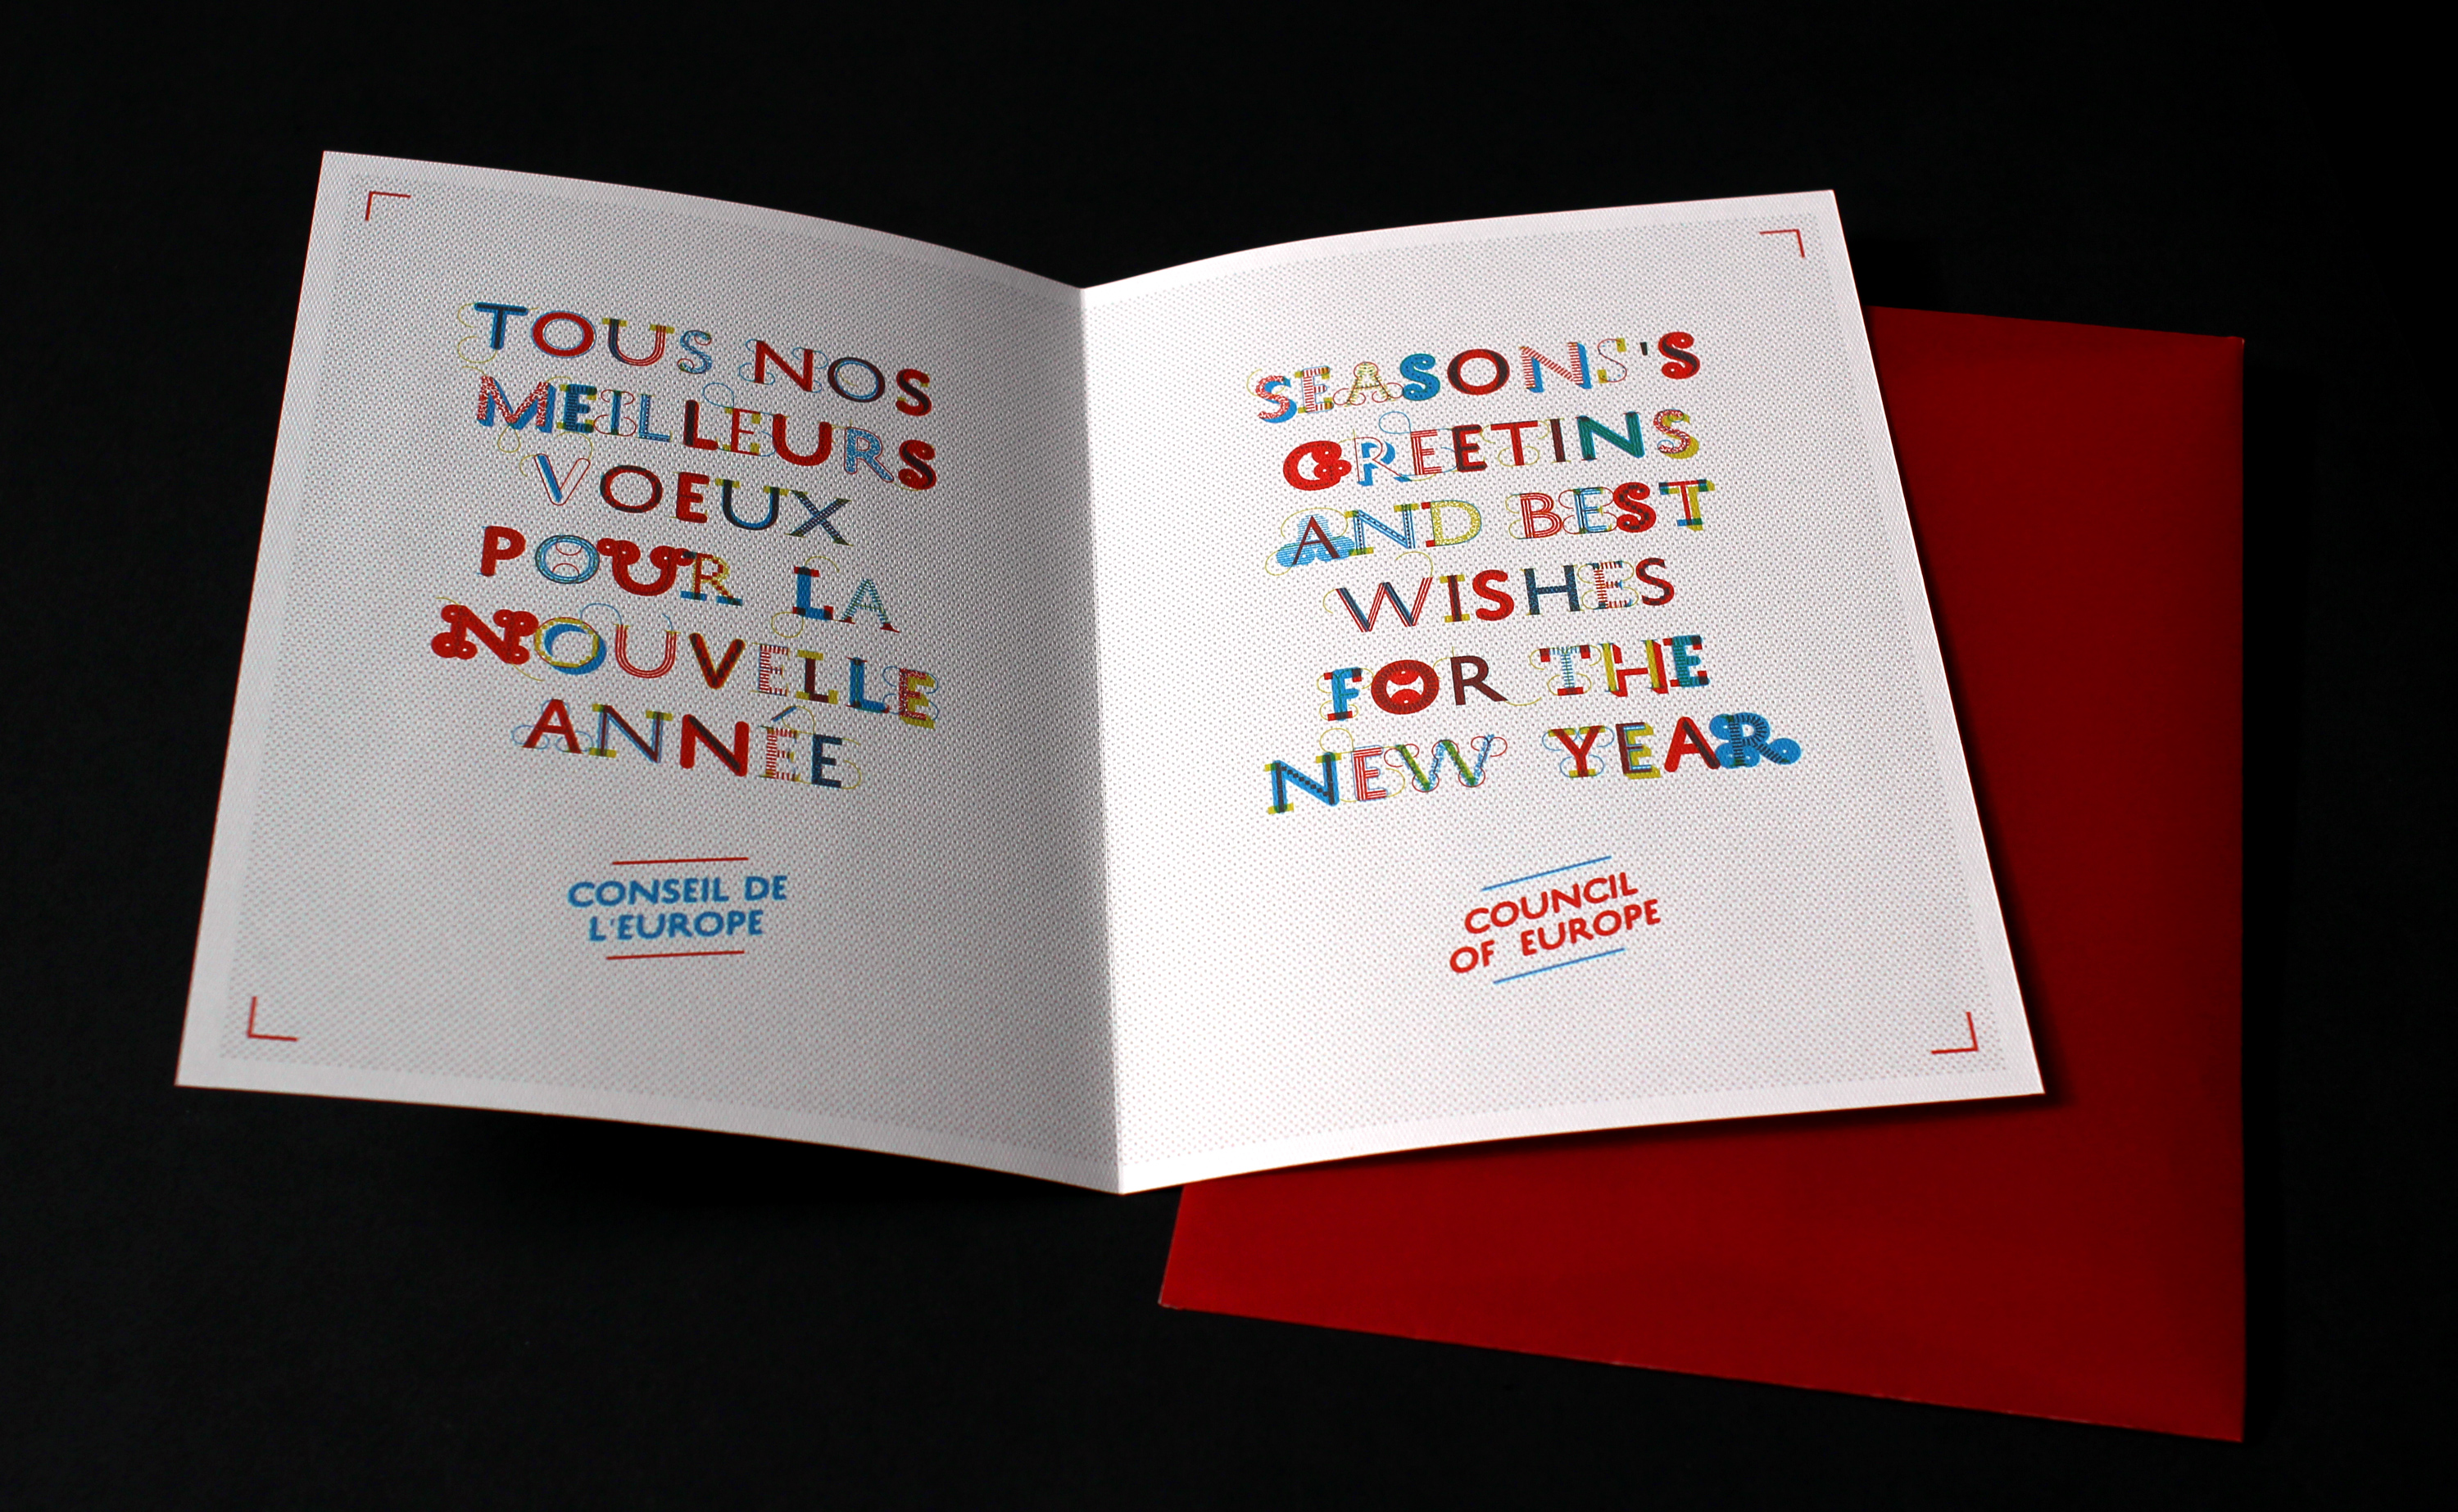 TOUS NOS
MEILLEURS
VOEUX
POUR LA
NOUVELLE
ANNÉE
CONSEIL DE
L'EUROPE
SEASONS'S
GREETINS
AND BEST
WISHES
FOR THE
NEW YEAR
COUNCIL
OF EUROPE